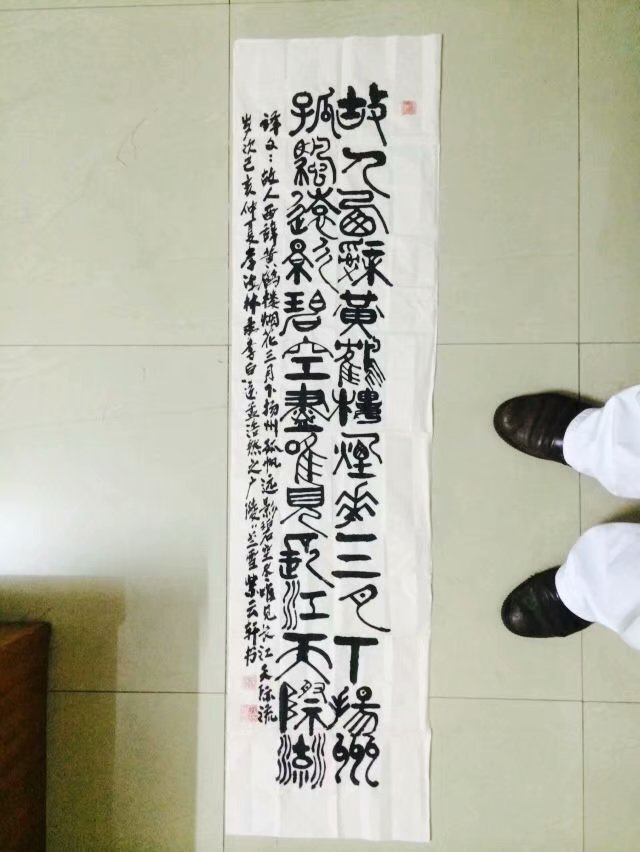 故人西辭黃鶴樓煙花三月下揚州
孤帆遠影碧空盡唯見長江天際流
译文：故人西辞黄鹤楼烟花三月下扬州孤帆远影碧空尽唯见长江天际流
岁次己亥仲夏李林录李白送孟浩然之广陵紫云轩书